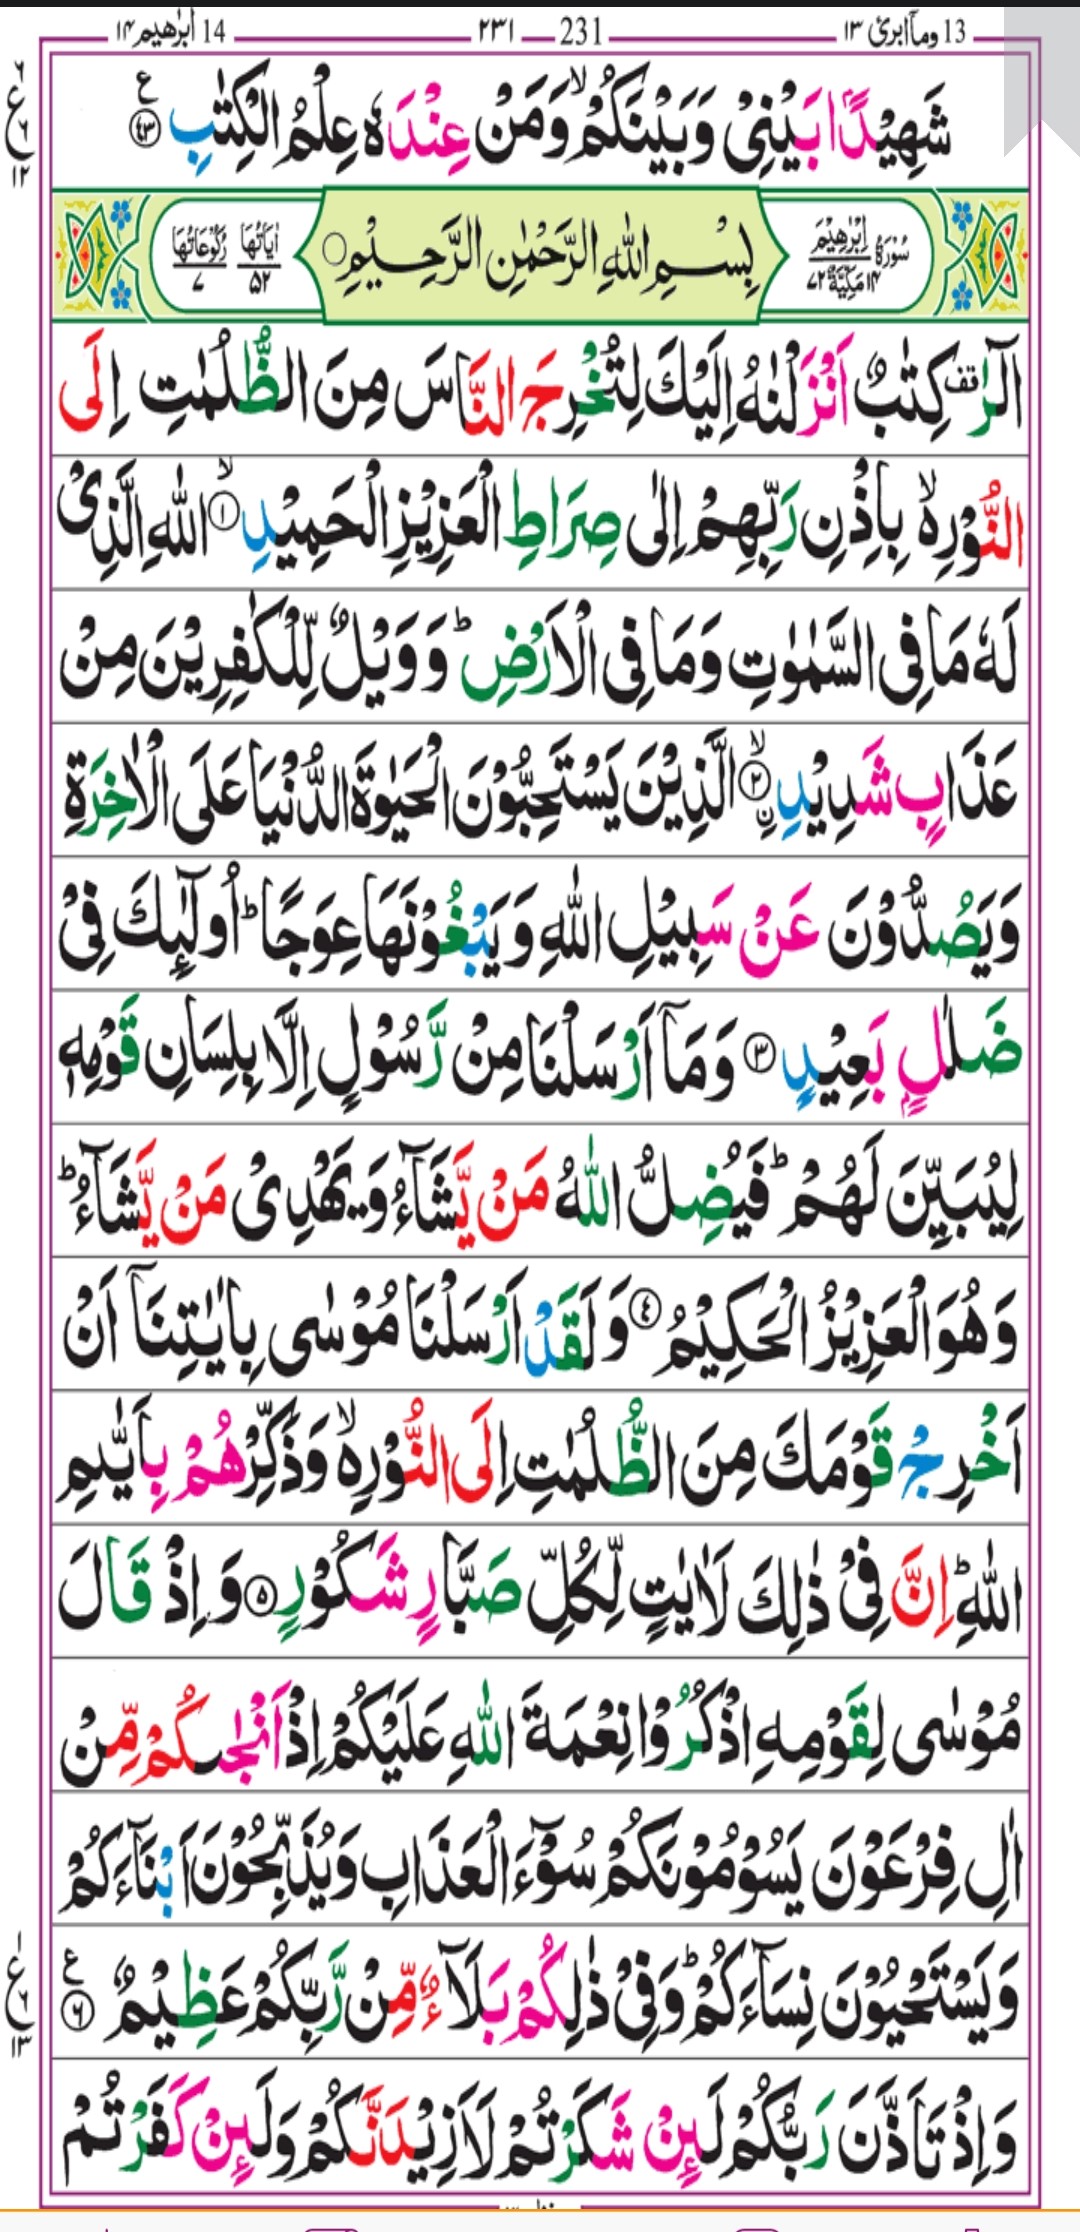 13 ومآابرئ ١٣ 231 ٢٣١ 14 ابرٰهيم ١٤
شَهِيْدًۢا بَيْنِيْ وَبَيْنَكُمْ ۙ وَمَنْ عِنْدَهٗ عِلْمُ الْكِتٰبِ ﴿٤٣﴾ ع
٦ ع ٦ ١٢
سُوْرَةُ اِبْرٰهِيْمَ ١٤ مَكِّيَّةٌ ٧٢ بِسْمِ اللهِ الرَّحْمٰنِ الرَّحِيْمِ اٰيَاتُهَا ٥٢ رُكُوْعَاتُهَا ٧
الٓرٰ ۫ كِتٰبٌ اَنْزَلْنٰهُ اِلَيْكَ لِتُخْرِجَ النَّاسَ مِنَ الظُّلُمٰتِ اِلَى
النُّوْرِ ۙ۬ بِاِذْنِ رَبِّهِمْ اِلٰى صِرَاطِ الْعَزِيْزِ الْحَمِيْدِ ۙ﴿١﴾ اللهِ الَّذِيْ
لَهٗ مَا فِي السَّمٰوٰتِ وَمَا فِي الْاَرْضِ ؕ وَوَيْلٌ لِّلْكٰفِرِيْنَ مِنْ
عَذَابٍ شَدِيْدِ ۙ﴿٢﴾ ۨ الَّذِيْنَ يَسْتَحِبُّوْنَ الْحَيٰوةَ الدُّنْيَا عَلَى الْاٰخِرَةِ
وَيَصُدُّوْنَ عَنْ سَبِيْلِ اللهِ وَيَبْغُوْنَهَا عِوَجًا ؕ اُولٰٓئِكَ فِيْ
ضَلٰلٍۢ بَعِيْدٍ ﴿٣﴾ وَمَآ اَرْسَلْنَا مِنْ رَّسُوْلٍ اِلَّا بِلِسَانِ قَوْمِهٖ
لِيُبَيِّنَ لَهُمْ ؕ فَيُضِلُّ اللهُ مَنْ يَّشَآءُ وَيَهْدِيْ مَنْ يَّشَآءُ ؕ
وَهُوَ الْعَزِيْزُ الْحَكِيْمُ ﴿٤﴾ وَلَقَدْ اَرْسَلْنَا مُوْسٰى بِاٰيٰتِنَآ اَنْ
اَخْرِجْ قَوْمَكَ مِنَ الظُّلُمٰتِ اِلَى النُّوْرِ ۙ۬ وَذَكِّرْهُمْ بِاَيّٰىمِ
اللهِ ؕ اِنَّ فِيْ ذٰلِكَ لَاٰيٰتٍ لِّكُلِّ صَبَّارٍ شَكُوْرٍ ﴿٥﴾ وَاِذْ قَالَ
مُوْسٰى لِقَوْمِهِ اذْكُرُوْا نِعْمَةَ اللهِ عَلَيْكُمْ اِذْ اَنْجٰىكُمْ مِّنْ
اٰلِ فِرْعَوْنَ يَسُوْمُوْنَكُمْ سُوْٓءَ الْعَذَابِ وَيُذَبِّحُوْنَ اَبْنَآءَكُمْ
وَيَسْتَحْيُوْنَ نِسَآءَكُمْ ؕ وَفِيْ ذٰلِكُمْ بَلَآءٌ مِّنْ رَّبِّكُمْ عَظِيْمٌ ﴿٦﴾ ع
١ ع ٦ ١٣
وَاِذْ تَاَذَّنَ رَبُّكُمْ لَئِنْ شَكَرْتُمْ لَاَزِيْدَنَّكُمْ وَلَئِنْ كَفَرْتُمْ